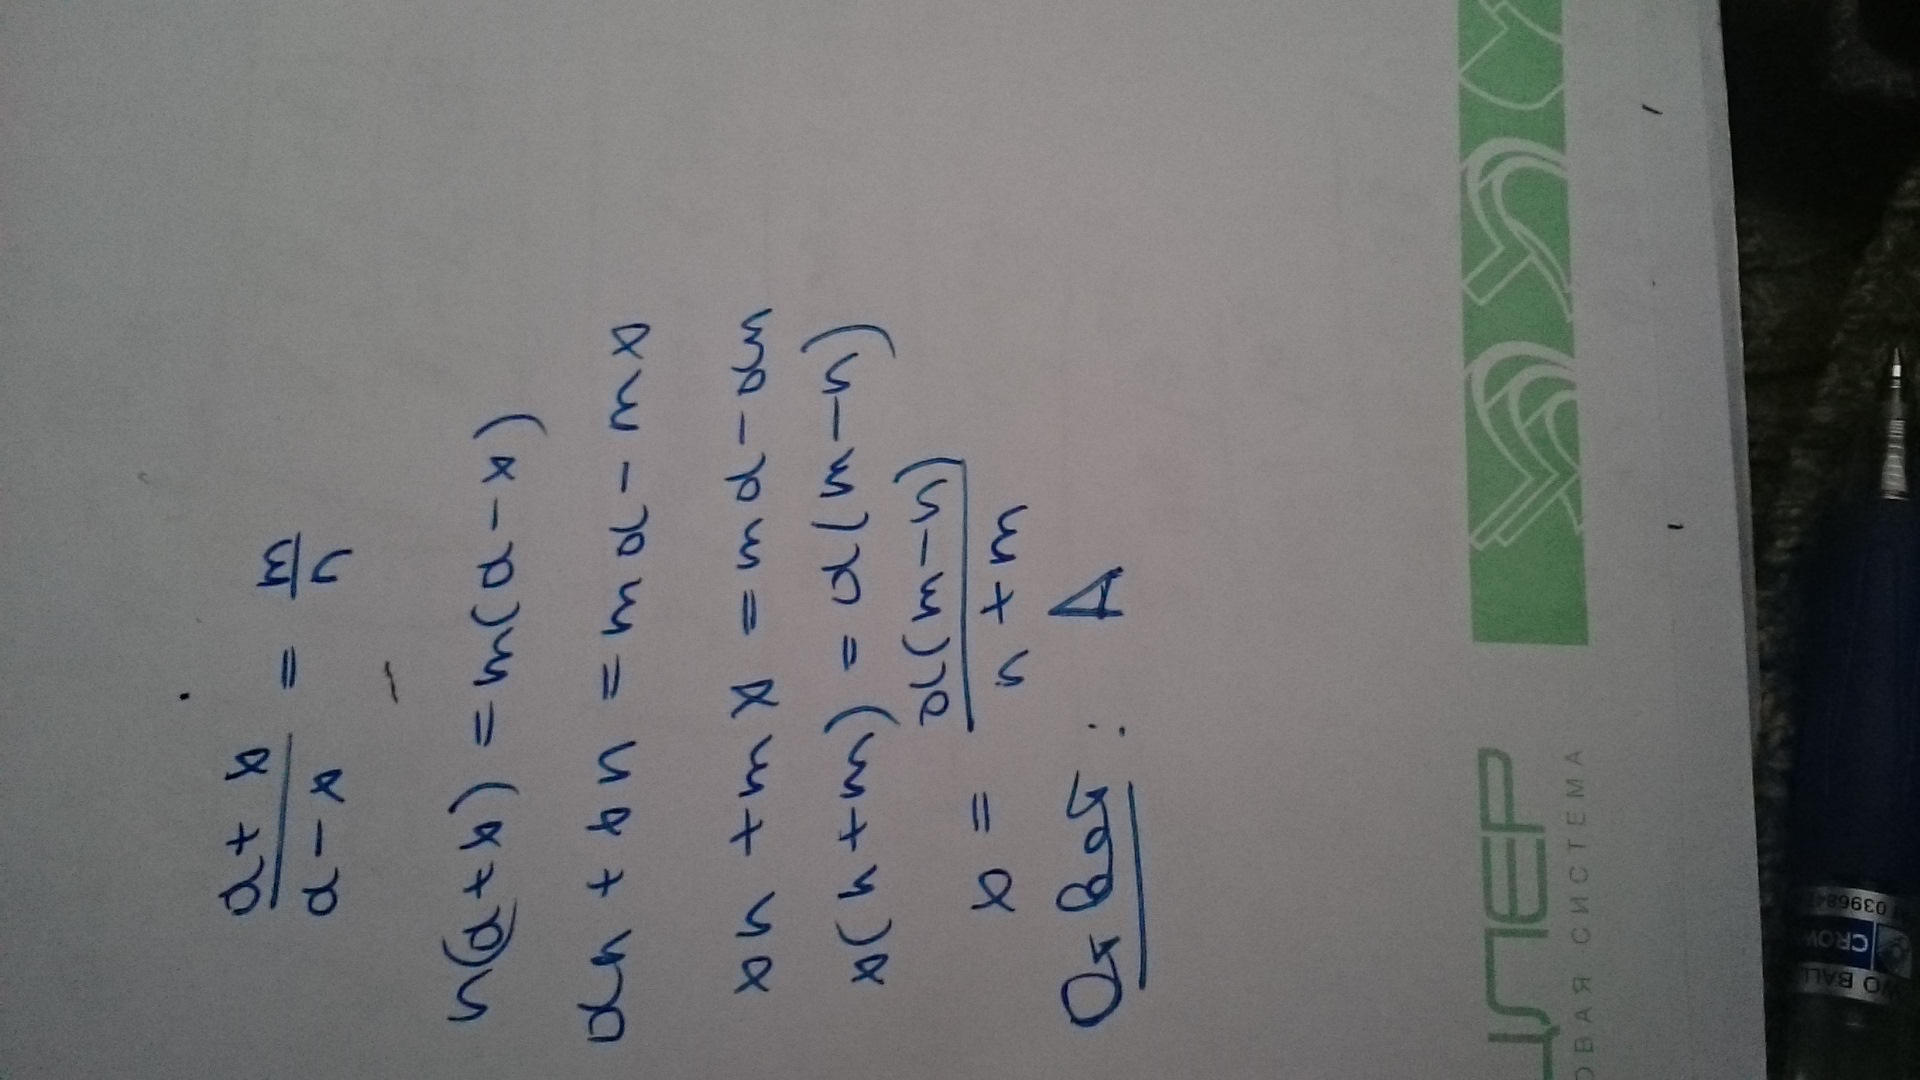 a + x / a - x = m / n
n(a + x) = m(a - x)
an + xn = ma - mx
xn + mx = ma - am
x(n + m) = a(m - n)
x = a(m - n) / n + m
Ответ: А
ЦЛЕР
ОВАЯ СИСТЕМА
WO BALL
CROW
039684